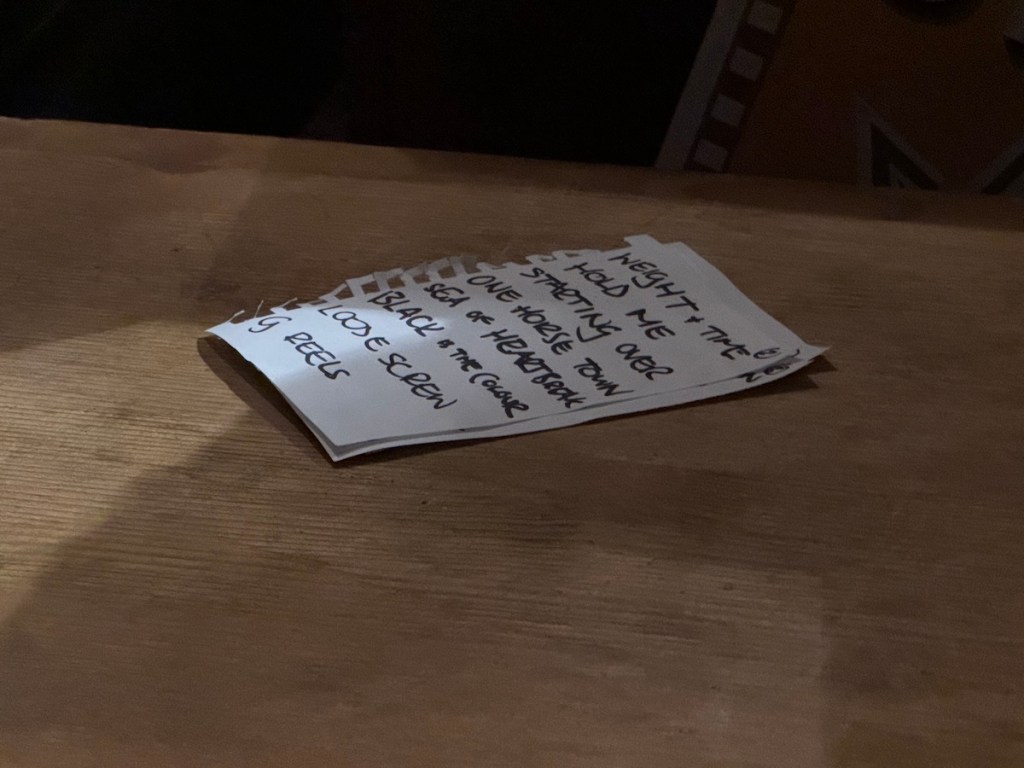 WEIGHT + TIME
HOLD ME
STARTING OVER
ONE HORSE TOWN
SEA OF HEARTBREAK
BLACK IS THE COLOUR
LOOSE SCREW
G REELS